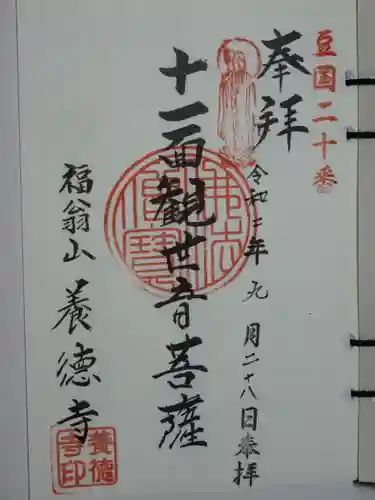 豆国二十番
奉拝
令和二年九月二十八日奉拝
十一面観世音菩薩
佛法僧寳
福翁山
養徳寺
養德寺印